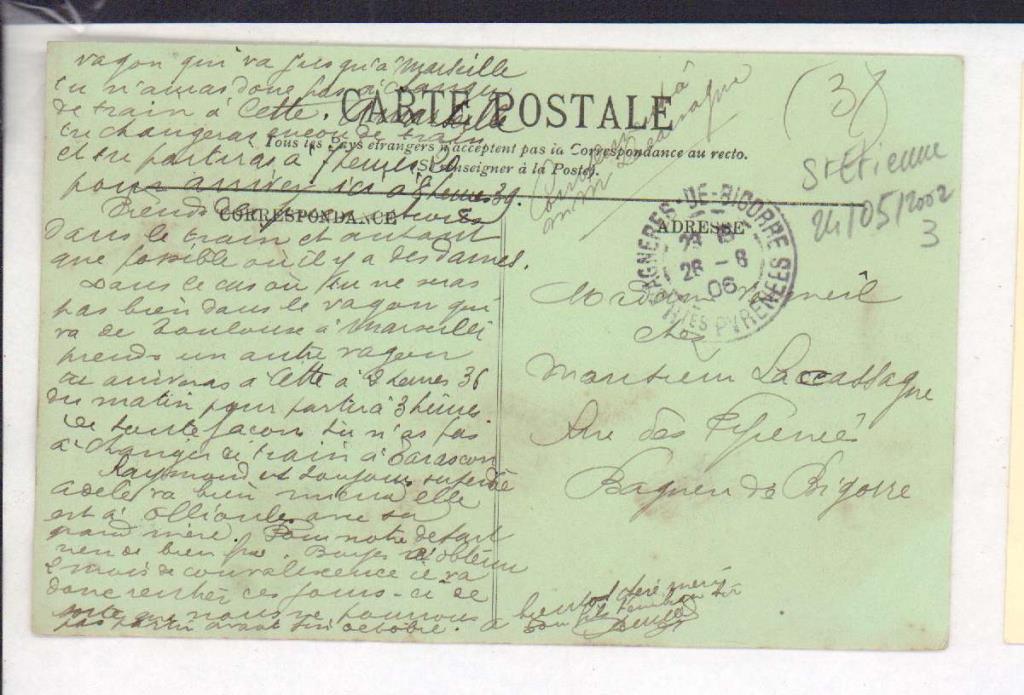 vagon qui va jusqu'à Marseille
tu n'auras donc pas à changer
de train à Cette. À Marseille
tu changeras encore de train
et tu partiras à 7 heures 20
pour arriver ici à 8 heures 39.
CARTE POSTALE
Tous les pays étrangers n'acceptent pas la Correspondance au recto.
(Se renseigner à la Poste).
CORRESPONDANCE
Prends
dans le train et autant
que possible où il y a des dames.
Dans le cas où tu ne seras
pas bien dans le vagon qui
va de Toulouse à Marseille
prends un autre vagon
tu arriveras à Cette à 2 heures 36
du matin pour partir à 3 heures
de toute façon tu n'as pas
à changer de train à Tarascon
Raymond est toujours
Adèle va bien elle
est à Ollioules avec sa
grand mère. Pour notre départ
rien de bien fixe.
mois de convalescence il va
donc rentrer ces jours-ci de
sorte que nous ne pourrons
pas partir avant fin octobre.
à bientôt
(3)
St Etienne
24/05/2002
3
ADRESSE
BAGNERES-DE-BIGORRE
28 -8
06
HTES PYRENEES
Madame
chez
Monsieur Laccassagne
Rue des Pyrenées
Bagneres de Bigorre